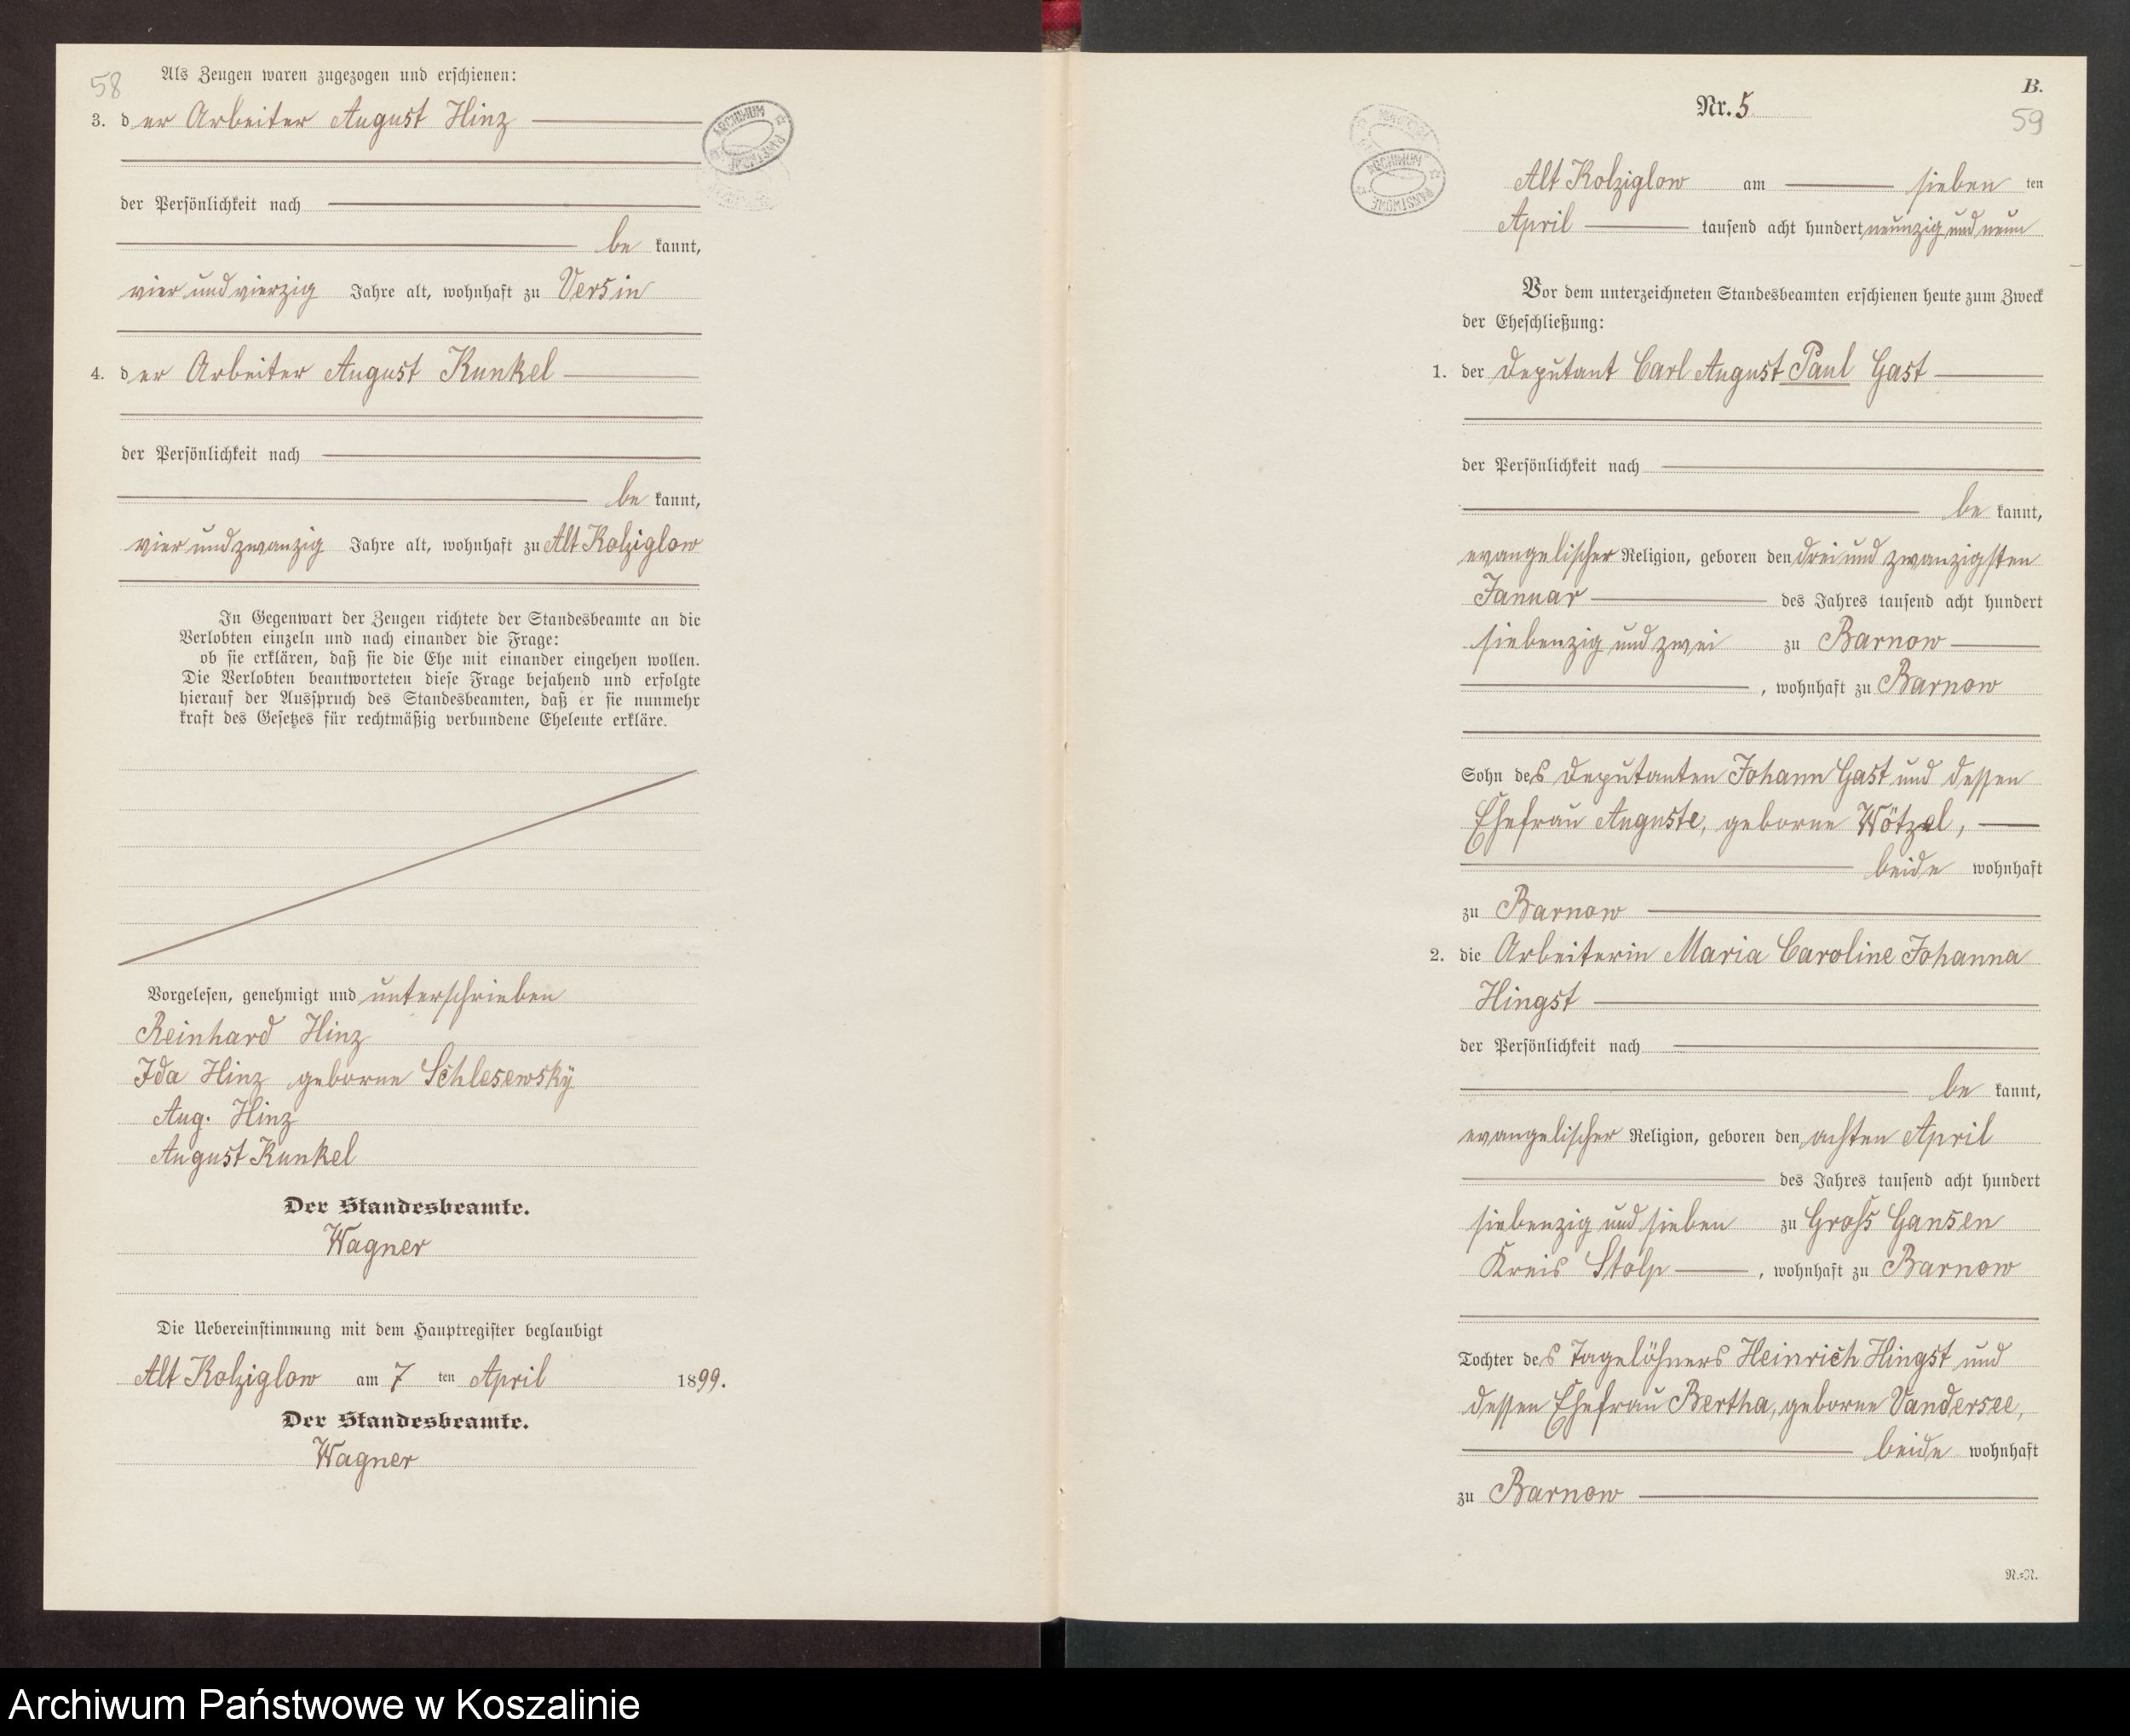 58
Als Zeugen waren zugezogen und erschienen:
3. der Arbeiter August Hinz
der Persönlichkeit nach
be kannt,
vier und vierzig Jahre alt, wohnhaft zu Versin
4. der Arbeiter August Kunkel
der Persönlichkeit nach
be kannt,
vier und zwanzig Jahre alt, wohnhaft zu Alt Kolziglow
In Gegenwart der Zeugen richtete der Standesbeamte an die
Verlobten einzeln und nach einander die Frage:
ob sie erklären, daß sie die Ehe mit einander eingehen wollen.
Die Verlobten beantworteten diese Frage bejahend und erfolgte
hierauf der Ausspruch des Standesbeamten, daß er sie nunmehr
kraft des Gesetzes für rechtmäßig verbundene Eheleute erkläre.
Vorgelesen, genehmigt und unterschrieben
Reinhard Hinz
Ida Hinz geborne Schlesewsky
Aug. Hinz
August Kunkel
Der Standesbeamte.
Wagner
Die Uebereinstimmung mit dem Hauptregister beglaubigt
Alt Kolziglow am 7 ten April 1899.
Der Standesbeamte.
Wagner
ARCHIWUM PAŃSTWOWE
B.
Nr. 5
59
ARCHIWUM PAŃSTWOWE
Alt Kolziglow am sieben ten
April tausend acht hundert neunzig und neun
Vor dem unterzeichneten Standesbeamten erschienen heute zum Zweck
der Eheschließung:
1. der Deputant Carl August Paul Gast
der Persönlichkeit nach
be kannt,
evangelischer Religion, geboren den drei und zwanzigsten
Januar des Jahres tausend acht hundert
siebenzig und zwei zu Barnow
, wohnhaft zu Barnow
Sohn des Deputanten Johann Gast und dessen
Ehefrau Auguste, geborne Wötzel,
beide wohnhaft
zu Barnow
2. die Arbeiterin Maria Caroline Johanna
Hingst
der Persönlichkeit nach
be kannt,
evangelischer Religion, geboren den achten April
des Jahres tausend acht hundert
siebenzig und sieben zu Groß Gansen
Kreis Stolp , wohnhaft zu Barnow
Tochter des Tagelöhners Heinrich Hingst und
dessen Ehefrau Bertha, geborne Vandersee,
beide wohnhaft
zu Barnow
N.=N.
Archiwum Państwowe w Koszalinie